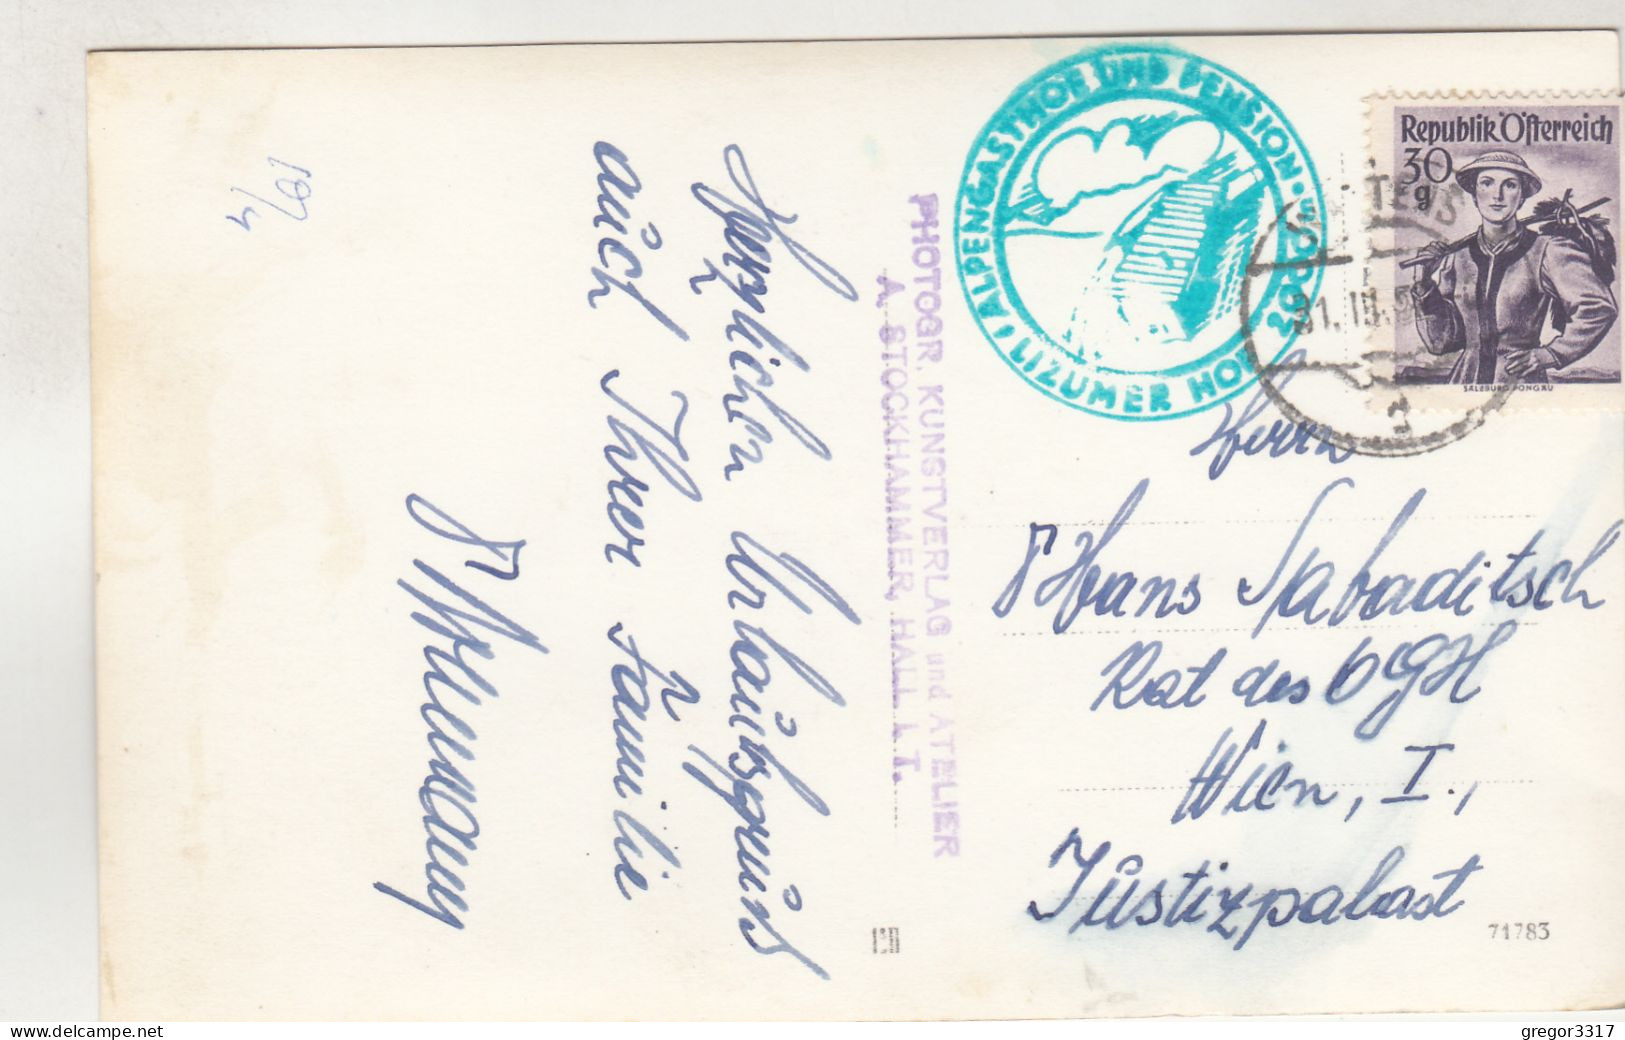 Herzlichen Urlaubsgruß
auch Ihrer Familie
ALPENGASTHOF UND PENSION • 2000 m • LIZUMER HOF
PHOTOGR. KUNSTVERLAG und ATELIER
A. STOCKHAMMER, HALL I. T.
Republik Österreich
30
g
SALZBURG PONGAU
31. III.
Herrn
Hans Sabaditsch
Rat des OGH
Wien, I.,
Justizpalast
71783
www.delcampe.net
gregor3317